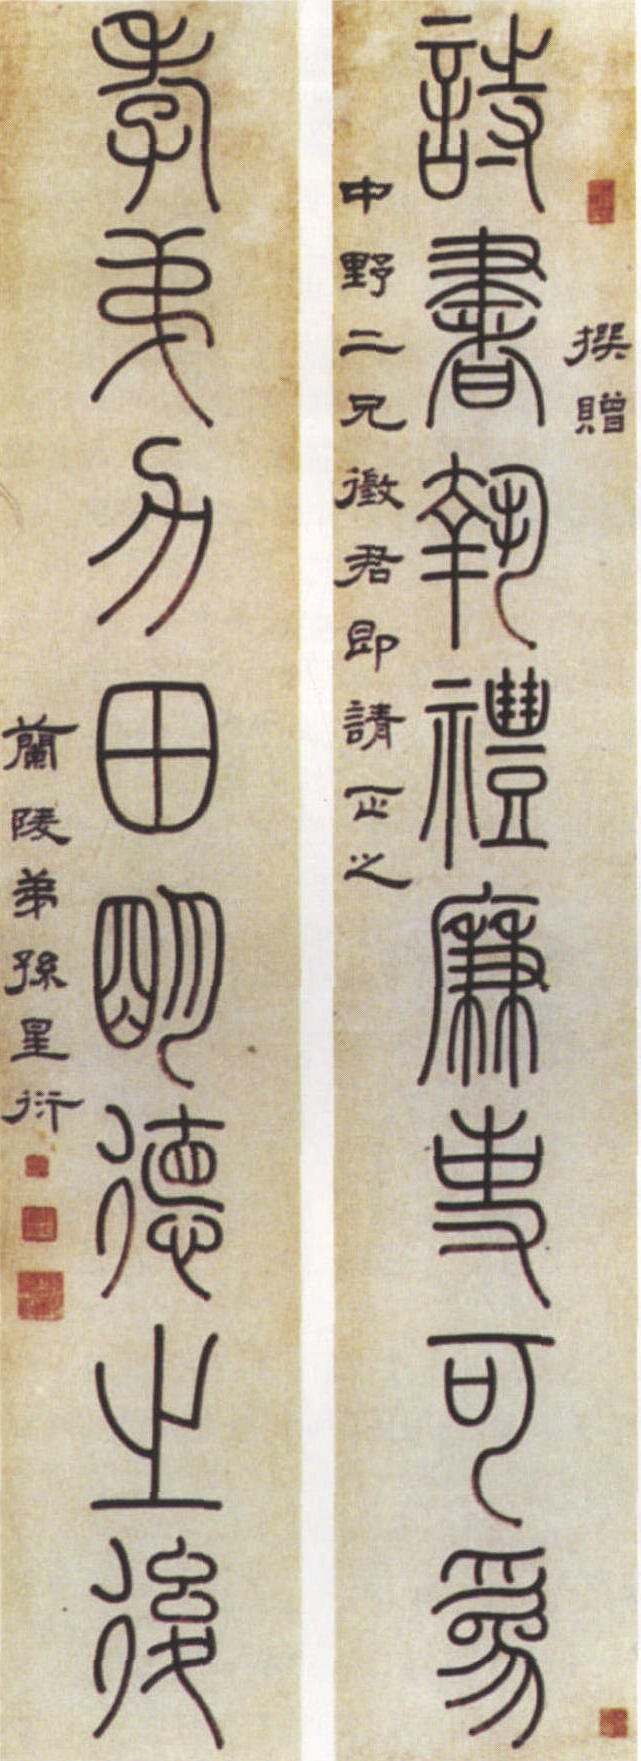 撰贈
詩書執禮廉吏可為
中野二兄徵君即請正之
孝弟力田明德之後
蘭陵弟孫星衍